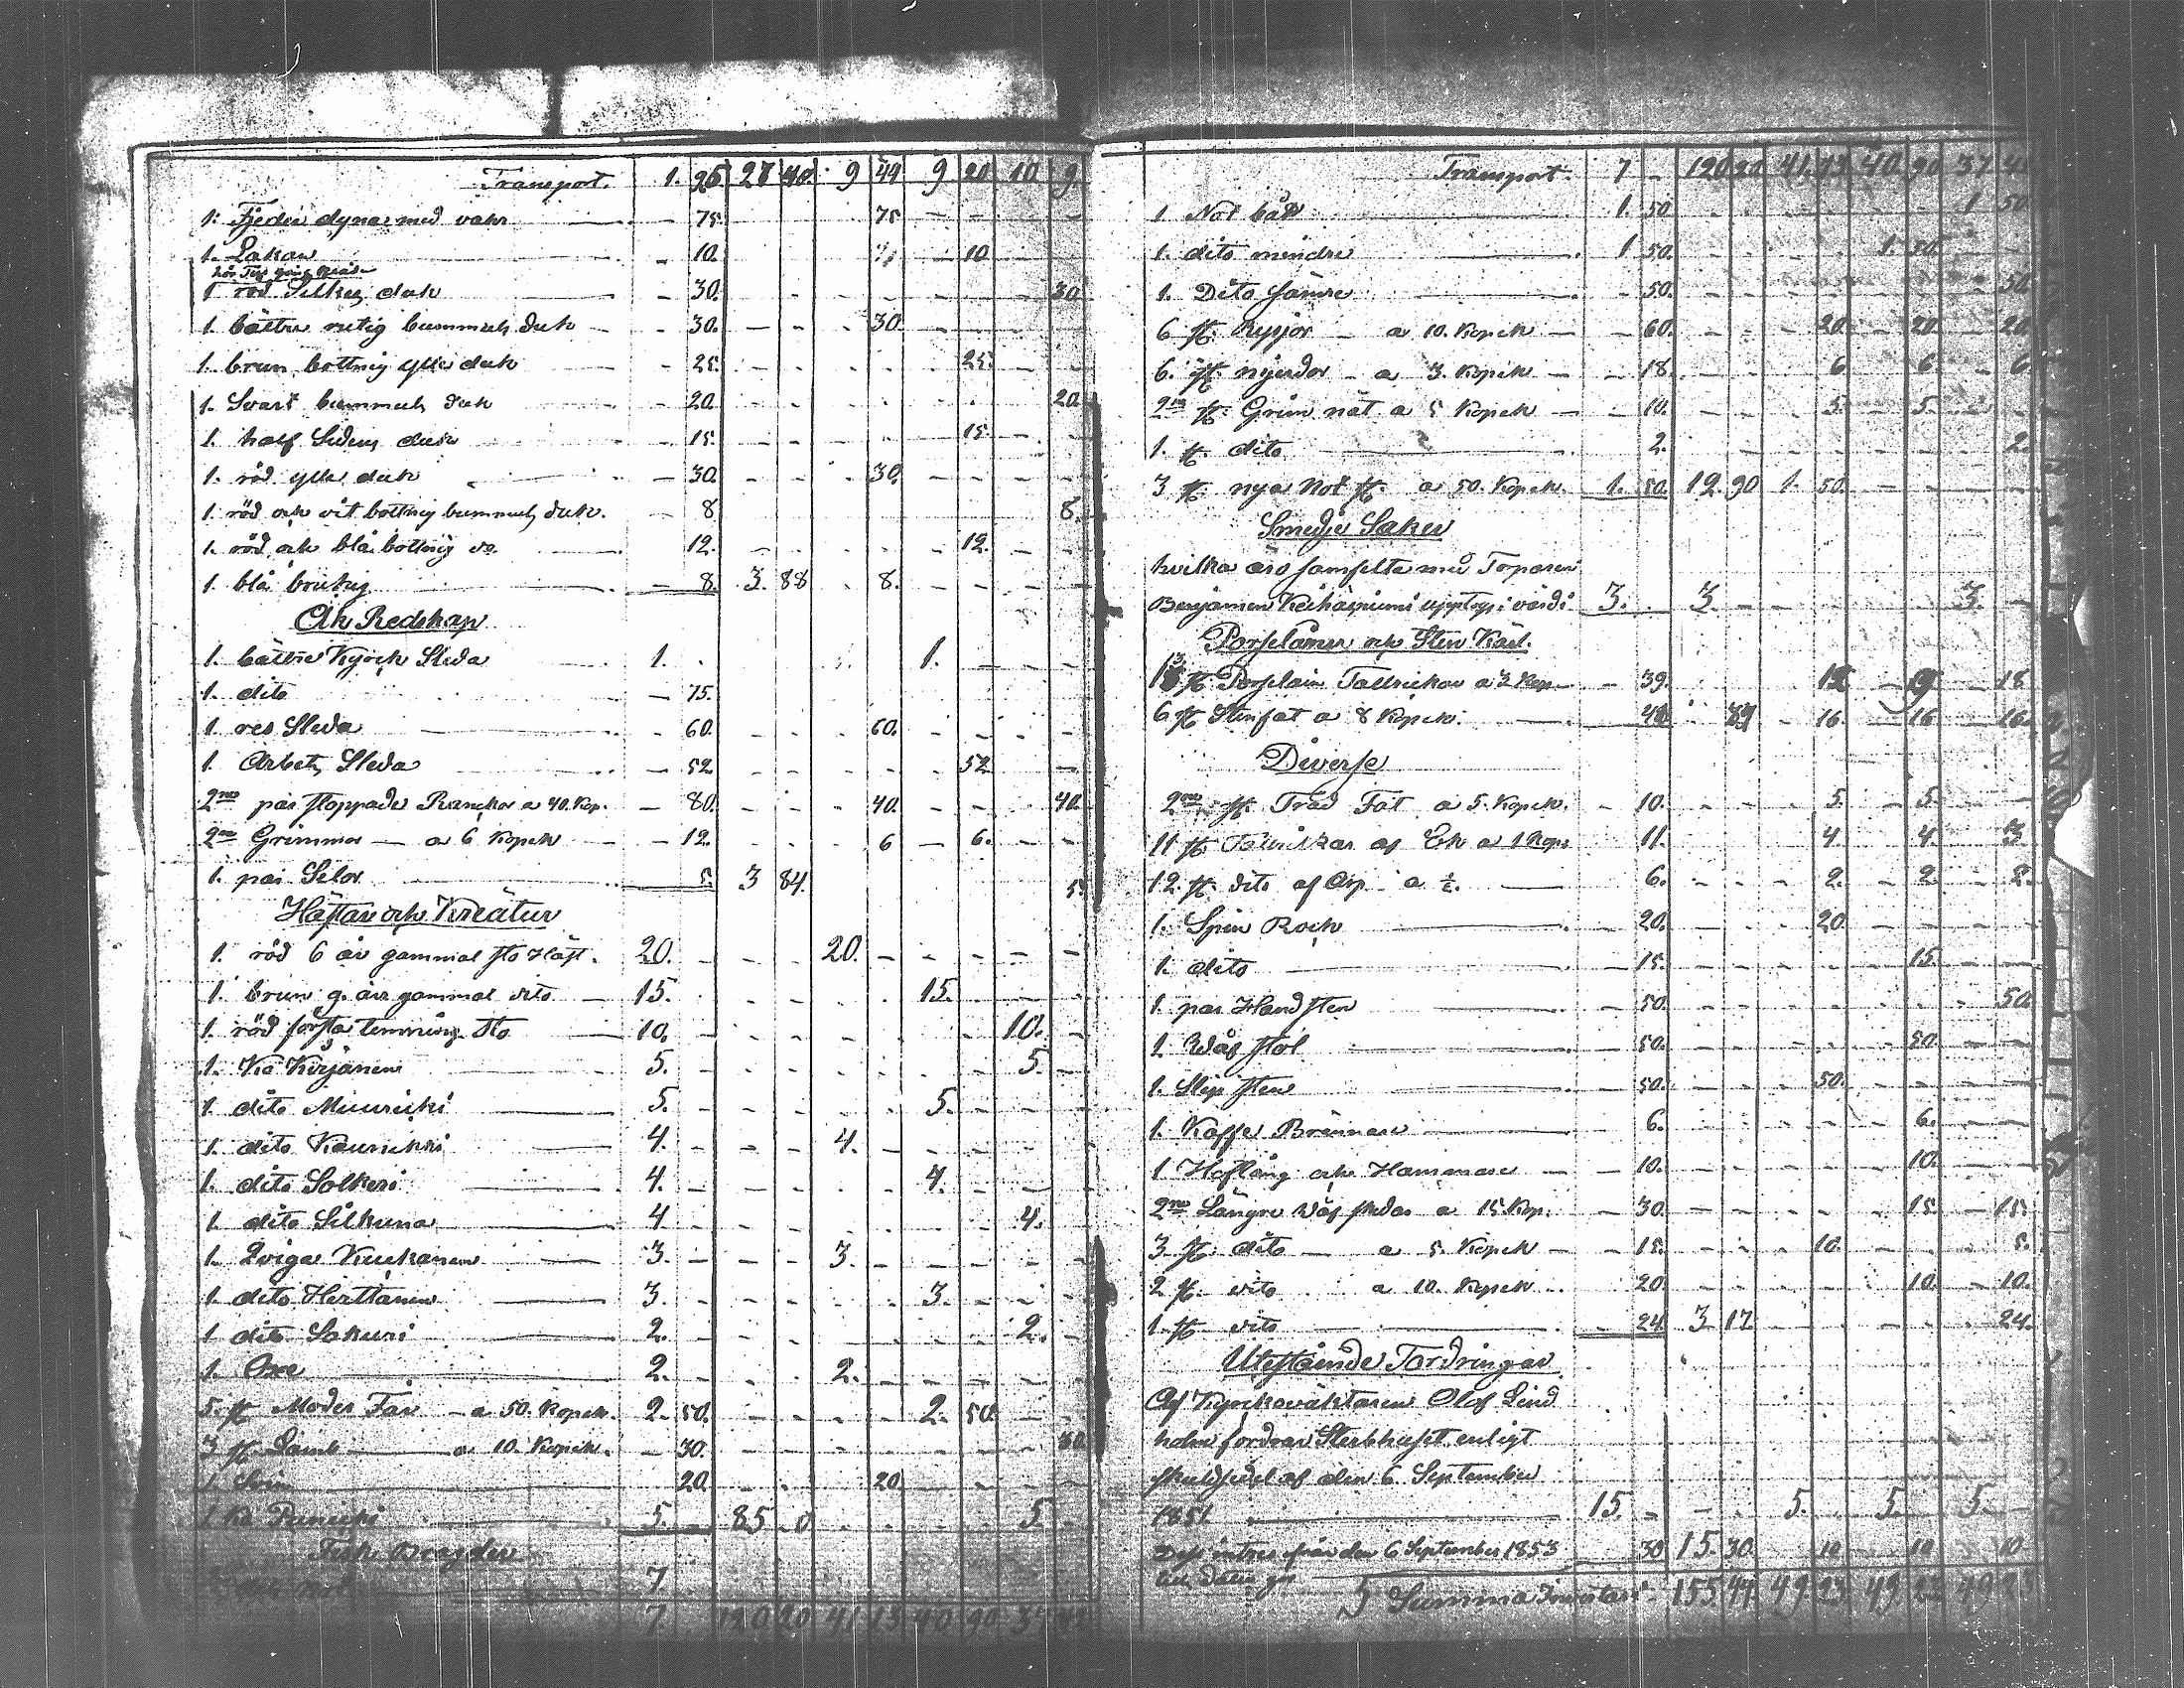 Transport. 1. 25. 27 40. 9 49 9 20 10 9.
1. Fjeder dyna med vahr — 75. 75 — — — —
1. Lakan — 10. 10
1 röd Silkes duk — 30. 30
1. bättre rutig bummuls duk — 30. — 30. —
1. brun bottnig ylle duk — 25. 25.
1. Svart bummuls duk — 20. 20.
1. half Sidens duk — 15. 15.
1. röd ylle duk — 30. 30.
1. röd och vit bottnig bummuls duk. — 8. 8.
1. röd och blå bottnig do. 12. 12.
1. blå brukig — 8. 3. 88 8.
Åk Redskap
1. bättre Kyrck Släda 1. 1.
1. dito — 75.
1. res Släda — 60. 60.
1 Arbets Släda — 52 52
2ne par stoppade Ranckor a 40. Kop. — 80. 40. 40.
2ne Grimmor — a 6 Kopek — 12. 6 6.
1. par Selor 5. 3 84. 5.
Hästar och Kreatur
1. röd 6 år gammal sto Häst. 20. 20.
1. brun 9. års gammal dito — 15. 15.
1. röd första temmings Sto 10. 10.
1. Ko Kirjänen 5. 5.
1 dito Muuricki 5. 5.
1. dito Kaurickki 4. 4.
1. dito Solkeri 4. 4.
1 dito Silkuna 4 4.
1. Qviga Kuckanen 3. 3.
1. dito Herttanen 3. 3.
1 dito Sakuri 2. 2.
1. Oxe 2. 2.
5. st Moder Får — a 50. Kopek. 2. 50. 2. 50.
3 st. Lamb a 10. Kopek. — 30. 30
1. Svin 20. 20.
1 Ko 5. 85. 0 5.
Fisk Bragder
7
7. 120 20 41 13 40. 90 37 42
Transport. 7 — 120 20 41. 13 40. 90 37
1 Not båt 1. 50. 1 50
1. dito mindre 1 50. 1. 50.
1. Dito sämre — 50. 50.
6 st. Ryssjor — a 10. Kopek — 60. 20. 20. 20
6. st. a 3. Kopek — 18. 6 6. 6
2ne st. Grim nät a 5 Kopek — 10. 5. 5.
1. st. dito 2. 2.
3 st. nya Not st. a 50. Kopek. 1. 50. 12. 90 1. 50.
Smedje Saker
hvilka äro samfelta med Torparen
Benjamin upptogs i värde 3. 3. — 3. —
Porselaner och Sten Kärl.
13 st. Porslain Tallrickar a 3 Kop — 39. 12 9 18
6 st Stenfat a 8 Kopek. 48. 87 16. 16 16.
Diverse
2ne st. Träd Fat a 5. Kopek. — 10. 5. 5.
11 st Tallrickar af Ek a 1 Kop. 11. 4. 4. 3
12. st. dito af Asp a ½. 6. 2. 2. 2.
1. Spin Rock — 20. 20.
1. dito — 15. 15.
1. par Hand sten — 50. 50.
1. Wäf stol — 50. 50.
1. Slip sten — 50. 50.
1. Kaffe Brännare — 6. 6.
1 Hoftång och Hammare — 10. 10.
2ne Längre Wäf skedar a 15 Kop. — 30. 15. 15.
3 st. dito — a 5. Kopek — 15. 10. 5.
2 st. dito a 10. Kopek 20. 10. 10.
1. st. dito 24. 3 17 24.
Utestående Fordringar
Af Kyrckoväktaren Olof Lind
holm fordrar Sterbhuset enligt
skuldsedel af den 6 September
1851. 15. 5. 5. 5.
Dess intres ifrån den 6 September 1853 30 15. 30. 10 10 10
Summa Inventari. 155. 44. 49. 23. 49. 23 49 23